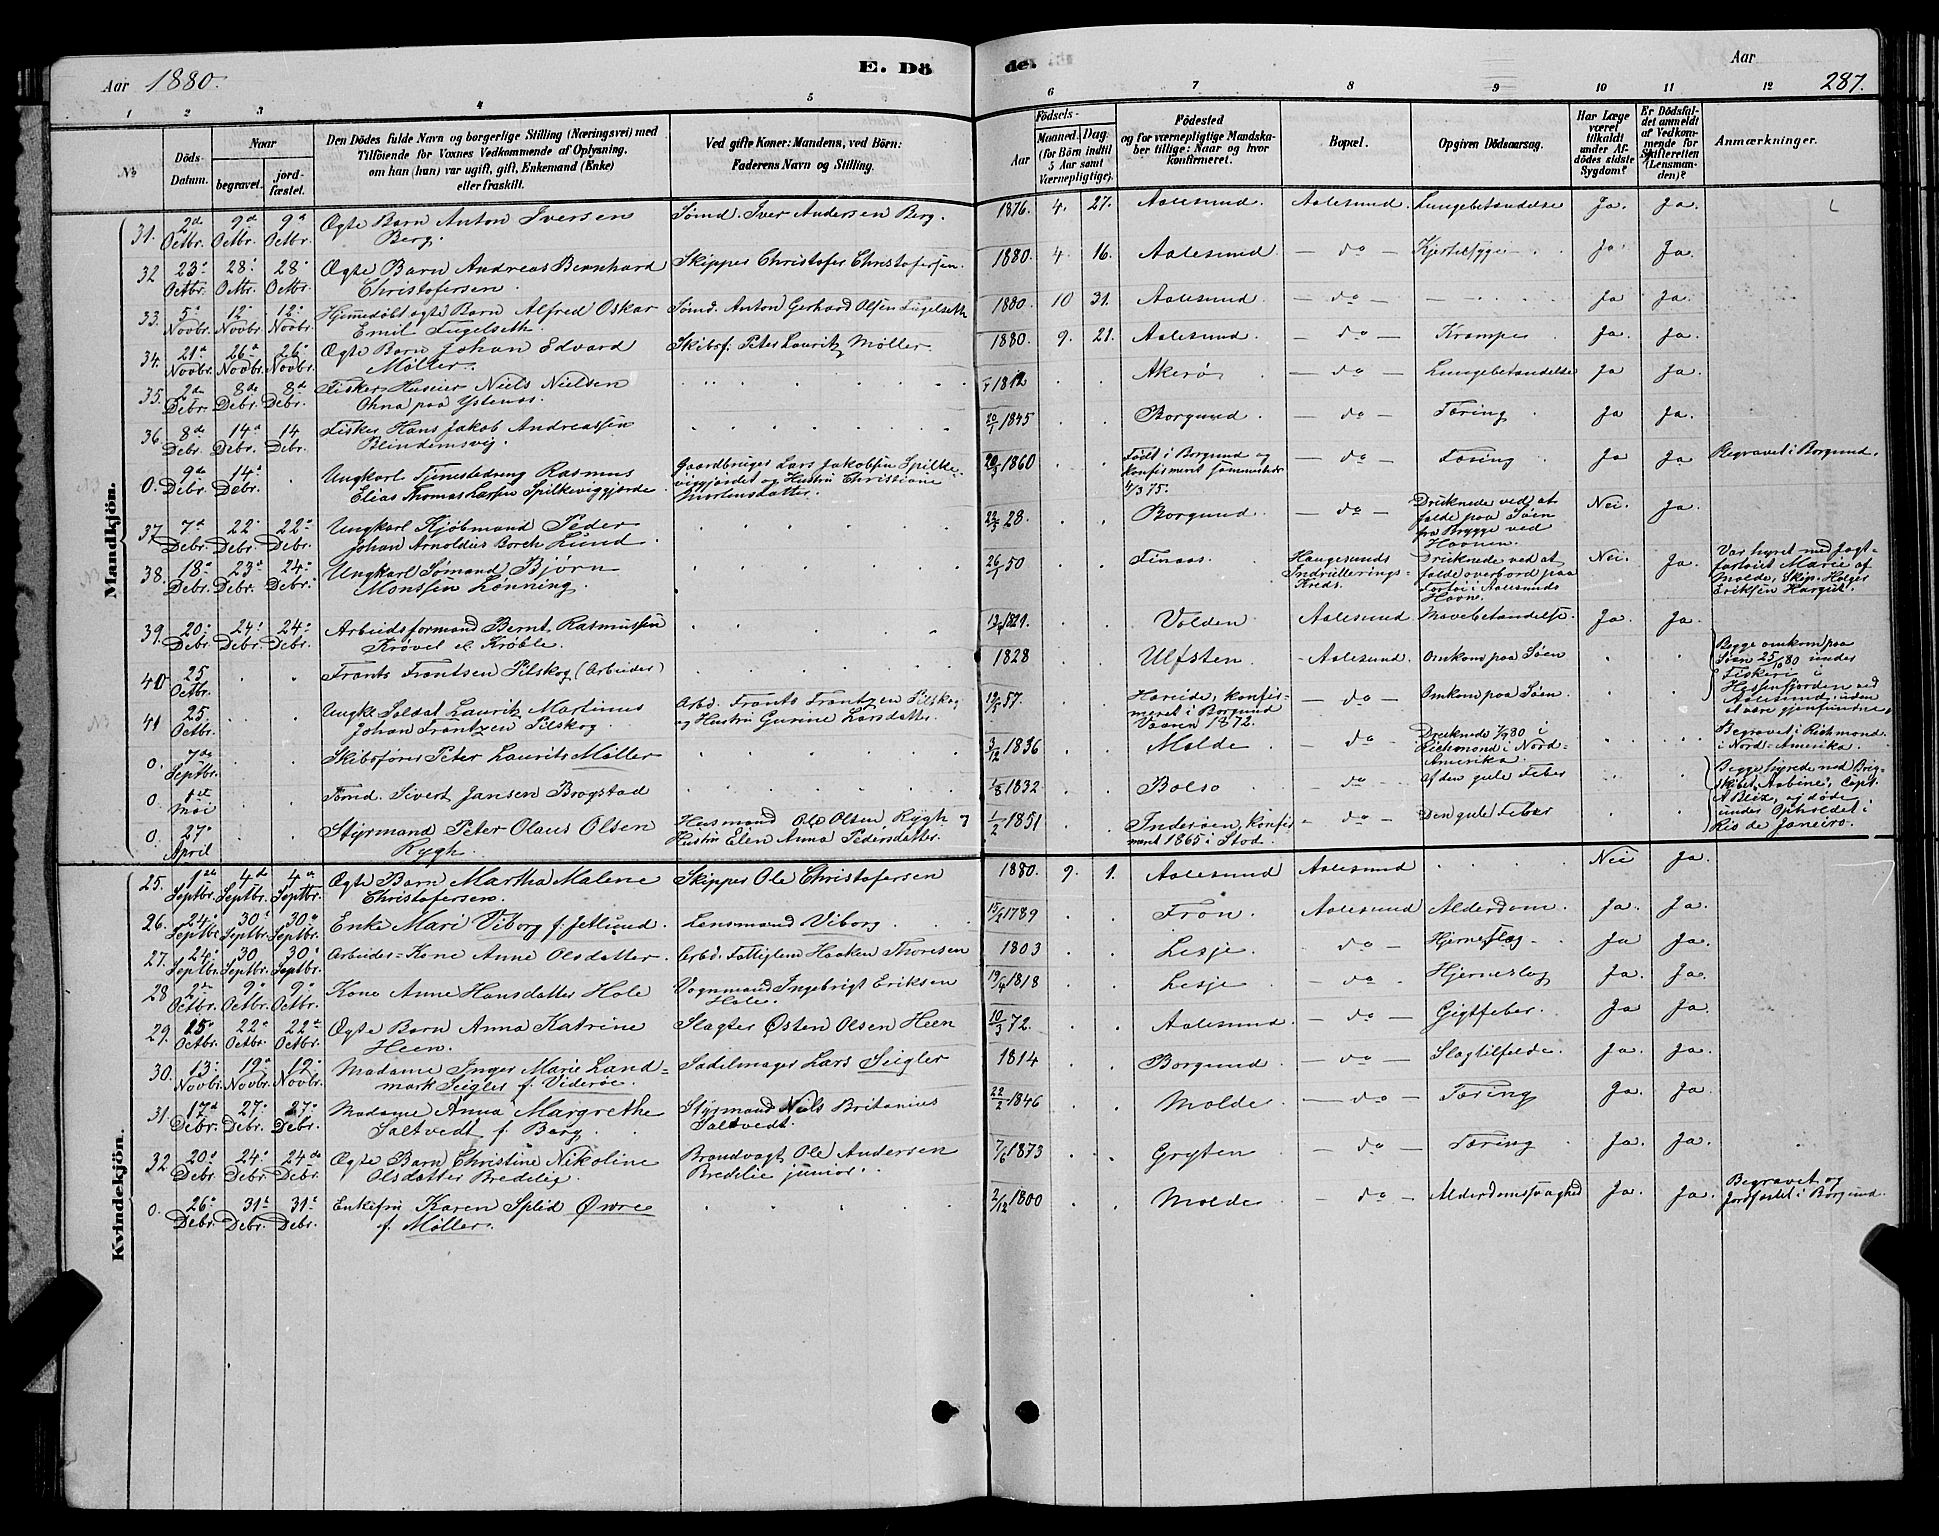 Aar 1880.
E. Dö
de.
Aar
287.
1 2 3 4 5 6 7 8 9 10 11 12
No
Döds-Datum.
Naar
begravet.
jordfæstet.
Den Dödes fulde Navn og borgerlige Stilling (Næringsvei) med
Tilföiende for Voxnes Vedkommende af Oplysning,
om han (hun) var ugift, gift, Enkemand (Enke)
eller fraskilt.
Ved gifte Koner: Mandens, ved Börn:
Faderens Navn og Stilling.
Födsels-
Aar
Maaned. Dag.
(for Börn indtil
5 Aar samt
Værnepligtige).
Födested
og for værnepligtige Mandska-
ber tillige: Naar og hvor
konfirmeret.
Bopæl.
Opgiven Dödsaarsag.
Har Læge
været
tilkaldt
under Af-
dödes sidste
Sygdom?
Er Dödsfal-
det anmeldt
af Vedkom-
mende for
Skifteretten
(Lensman-
den)?
Anmærkninger.
Mandkjön.
31. 2de Octbr. 9de Octbr. 9de Octbr. Ægte Barn Anton Iversen Berg. Sømd. Iver Andersen Berg. 1876. 4. 27. Aalesund. Aalesund. Lungebetændelse Ja. Ja.
32 23de Octbr. 28de Octbr. 28de Octbr. Ægte Barn Andreas Bernhard Christofersen. Skipper Christofer Christofersen. 1880. 4. 16. Aalesund — do — Kjertelsyge Ja. Ja.
33. 5te Novbr. 12te Novbr. 12te Novbr. Hjemmedøbt ægte Barn Alfred Oskar Emil Fugelseth. Sømd. Anton Gerhard Olsen Fugelseth 1880. 10 31. Aalesund — do — Ja Ja.
34. 21de Novbr. 26de Novbr. 26de Novbr. Ægte Barn Johan Edvard Møller. Skibsf. Peter Lauritz Møller. 1880. 9. 21. Aalesund. — do — Krampe Ja. Ja.
35. 2de Debr. 8de Debr. 8de Debr. Fisker Huseier Niels Nielsen Ohna paa Ystenæs. 1812 Akerø — do — Lungebetændelse Ja Ja.
36 8de Debr. 14de Debr. 14 Debr. Fisker Hans Jakob Andreassen Blindemsvig. 20/1 1845 Borgund. — do — Tæring Ja Ja.
0. 9de Debr. 14de Debr. Ungkarl Tjenestedreng Rasmus Elias Thomas Larsen Spilkeviggjorde. Gaardbruger Lars Jakobsen Spilkeviggjordet og Hustru Christiane Mortensdatter. 1860 Født i Borgund og konfirmeret sammesteds 4/3 75. — do — Tæring Ja Ja Begravet i Borgund.
37 7de Debr. 22 Debr. 22de Debr. Ungkarl Kjøbmand Peder Johan Arnoldus Borch Lund 28. Borgund. — do — Druknede ved at falde paa Søen fra Brygge ved Havnen. Nei. Ja.
38. 18de Debr. 23de Debr. 24de Debr. Ungkarl Sømand Bjørn Monssen Lønning. 26/1 50 Finaas. Haugesunds Indrulleringskreds. Druknede ved at falde overbord paa Fartøi i Aalesunds Havn. Nei. Ja. Var hyret med Jagtfartøiet Marie af Molde, Skip. Holger Eriksen Hargut.
39. 20de Debr. 24de Debr. 24de Debr. Arbeidsformand Bernt Rasmussen Krøvel el. Krøble. 1821. Volden Aalesund. Mavebetændelse. Ja. Ja.
40 25 Octbr. Frants Frantsen Pilskog (Arbeider) 1828 Ulfsten. Aalesund. Omkom paa Søen Begge omkom paa Søen 25/10 80 under Fiskeri i Hessenfjorden ved Aalesund, uden at være gjenfundne.
41 25 Octbr. Ungk. Soldat Lauritz Martinus Johan Frantzen Pilskog. Arbd. Frants Frantzen Pilskog og Hustru Gurine Larsdatter. 57. Hareide, konfirmeret i Borgund Vaaren 1872. — do — Omkom paa Søen.
0. 7de Septbr. Skibsfører Peter Laurits Møller 3/12 1836 Molde — do — Druknede 7/9 80 i Richmond i Nord-Amerika. Begravet i Richmond i Nord-Amerika.
0. 1ste Mai Sømd. Sivert Jansen Brogstad 1/8 1832 Bolsø do — Af den gule Feber Begge hyrede med Brigskibet "Aabine", Capt. A. Blix, og døde under Opholdet i Rio de Janeiro.
0. 27de April Styrmand Peter Olaus Olsen Rygh. Husmand Ole Olsen Rygh og Hustru Elen Anna Pedersdatter. 1/2 1851 Inderøen, konfirmeret 1865 i Stod. — do — Den gule Feber
Kvindekjön.
25. 1ste Septbr. 4de Septbr. 4de Septbr. Ægte Barn Martha Malene Christofersen. Skipper Ole Christofersen 1880. 9. 1. Aalesund Aalesund Nei Ja.
26. 24de Septbr. 30de Septbr. 30de Septbr. Enke Mari Viborg f. Jetlund. Lensmand Viborg 15/2 1789 Fron. Aalesund Alderdom. Ja. Ja.
27. 24 Septbr. 30 Septbr. 30de Septbr. Arbeider-Kone Anne Olsdatter. Arbd. Fattiglem Haaken Thoresen 1803 Lesje. do — Hjerneslag. Ja Ja.
28 2de Octbr. 9de Octbr. 9de Octbr. Kone Anne Hansdatter Hole Vognmand Ingebrigt Eriksen Hole. 19/4 1818 Lesje — do — Hjerneslag Ja. Ja.
29. 15de Octbr. 22de Octbr. 22de Octbr. Ægte Barn Anna Katrine Heen. Slagter Østen Olsen Heen 10/3 72. Aalesund. — do — Gigtfeber. Ja Ja.
30. 13de Novbr. 19de Novbr. 19de Novbr. Madame Inger Marie Landmark Seigler f. Viderøe. Sadelmager Lars Seigler 1814 Borgund — do — Slagtilfelde. Ja. Ja.
31. 17de Debr. 27de Debr. 27de Debr. Madame Anna Margrethe Saltvedt f. Berg. Styrmand Niels Britanius Saltvedt. 22/2 1846 Molde. — do — Tæring Ja. Ja.
32. 20de Debr. 24de Debr. 24de Debr. Ægte Barn Christine Nikoline Olsdatter Bredelig. Brandvagt Ole Andersen Bredelie junior. 7/6 1873 Grytten — do — Tæring Ja. Ja.
0. 26de Debr. 31te Debr. 31te Debr. Enkefru Karen Splid Øwre f. Møller. 2/12 1800 Molde — do — Alderdomssvaghed Ja. Ja. Begravet og Jordfæstet i Borgund.